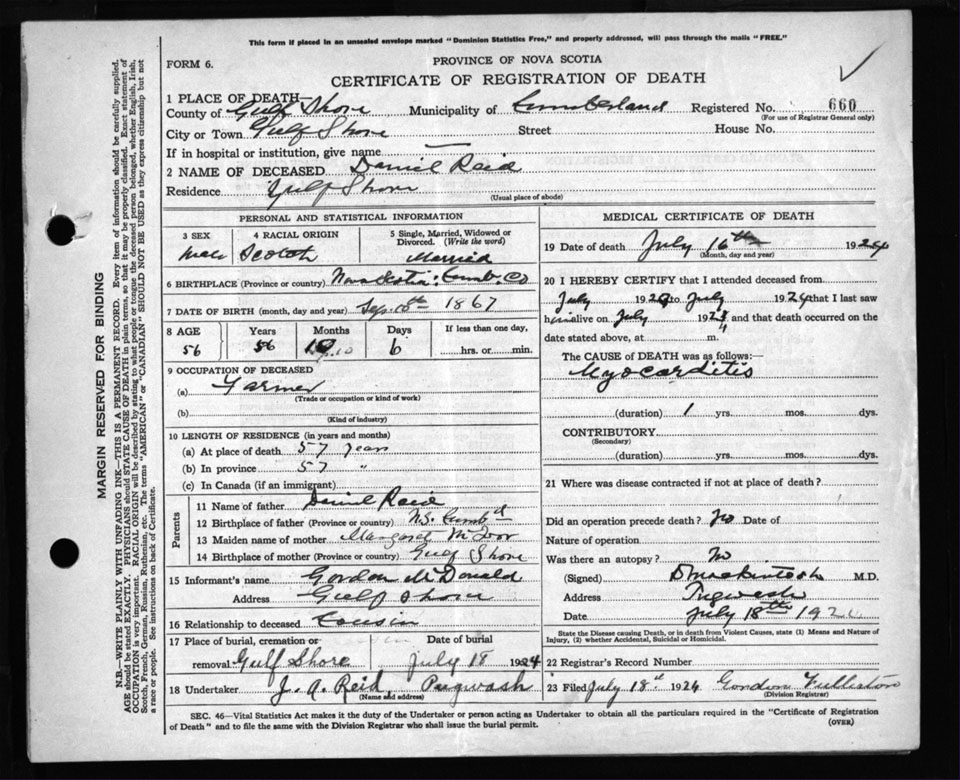 This form if placed in an unsealed envelope marked "Dominion Statistics Free," and properly addressed, will pass through the mails "FREE."
FORM 6.
PROVINCE OF NOVA SCOTIA
CERTIFICATE OF REGISTRATION OF DEATH
1 PLACE OF DEATH—
County of Gulf Shore Municipality of Cumberland Registered No. 660
(For use of Registrar General only)
City or Town Gulf Shore Street House No.
If in hospital or institution, give name —
2 NAME OF DECEASED Daniel Reid
Residence Gulf Shore
(Usual place of abode)
PERSONAL AND STATISTICAL INFORMATION
3 SEX 4 RACIAL ORIGIN 5 Single, Married, Widowed or Divorced. (Write the word)
male Scotch Married
6 BIRTHPLACE (Province or country) Nova Scotia: Cumb. Co
7 DATE OF BIRTH (month, day and year) Sep 1867
8 AGE Years Months Days If less than one day,
56 56 10 6 hrs. or min.
9 OCCUPATION OF DECEASED
(a) Farmer
(Trade or occupation or kind of work)
(b)
(Kind of industry)
10 LENGTH OF RESIDENCE (in years and months)
(a) At place of death 57 years
(b) In province 57 "
(c) In Canada (if an immigrant)
Parents
11 Name of father Daniel Reid
12 Birthplace of father (Province or country) N.S. Cumb'd
13 Maiden name of mother Margaret
14 Birthplace of mother (Province or country) Gulf Shore
15 Informant's name Gordon McDonald
Address Gulf Shore
16 Relationship to deceased Cousin
17 Place of burial, cremation or Date of burial
removal Gulf Shore July 18 1924
18 Undertaker J. A. Reid, Pugwash
(Name and address)
MEDICAL CERTIFICATE OF DEATH
19 Date of death July 16th 1924
(Month, day and year)
20 I HEREBY CERTIFY that I attended deceased from
July 192 to July 1924 that I last saw
him alive on July 1924 and that death occurred on the
date stated above, at m.
The CAUSE OF DEATH was as follows:
Myocarditis
(duration) 1 yrs. mos. dys.
CONTRIBUTORY
(Secondary)
(duration) yrs. mos. dys.
21 Where was disease contracted if not at place of death?
Did an operation precede death? No Date of
Nature of operation
Was there an autopsy? No
(Signed) D Mackintosh M.D.
Address Pugwash
Date July 18th 192
State the Disease causing Death, or in death from Violent Causes, state (1) Means and Nature of Injury, (2) whether Accidental, Suicidal or Homicidal.
22 Registrar's Record Number
23 Filed July 18th 1924 Gordon
(Division Registrar)
SEC. 46—Vital Statistics Act makes it the duty of the Undertaker or person acting as Undertaker to obtain all the particulars required in the "Certificate of Registration
of Death" and to file the same with the Division Registrar who shall issue the burial permit.
(OVER)
MARGIN RESERVED FOR BINDING
N.B.—WRITE PLAINLY WITH UNFADING INK—THIS IS A PERMANENT RECORD. Every item of information should be carefully supplied.
AGE should be stated EXACTLY. PHYSICIANS should STATE CAUSE OF DEATH in plain terms, so that it may be properly classified. Exact statement of
OCCUPATION is very important. RACIAL ORIGIN will be described by stating to what people or tongue the deceased person belonged, whether English, Irish,
Scotch, French, German, Russian, Ruthenian, etc. The terms "AMERICAN" or "CANADIAN" SHOULD NOT BE USED as they express citizenship but not
a race or people. See instructions on back of Certificate.